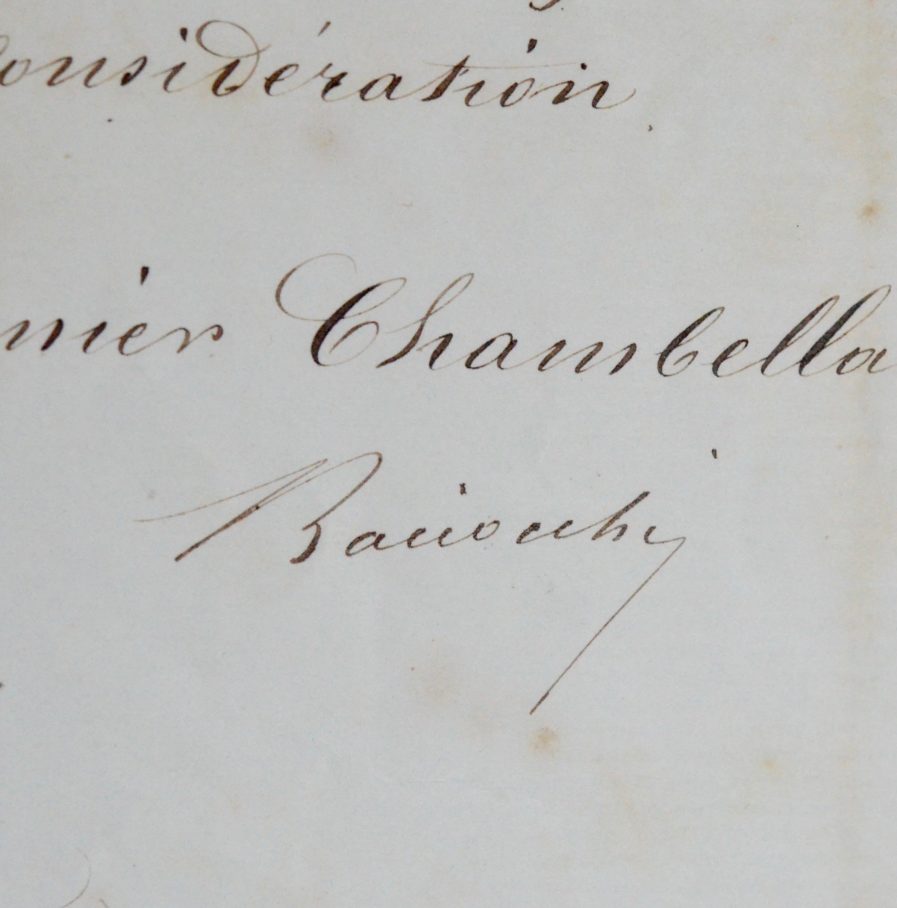 onsidération
nier Chambella
Baciocchi